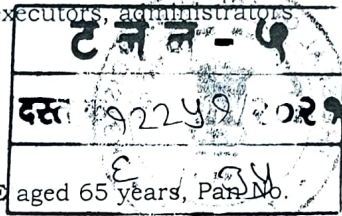 executors, administrators
ट न न - ५
दस्त १२२५१ २०२१
६ ३५
aged 65 years, Pan No.